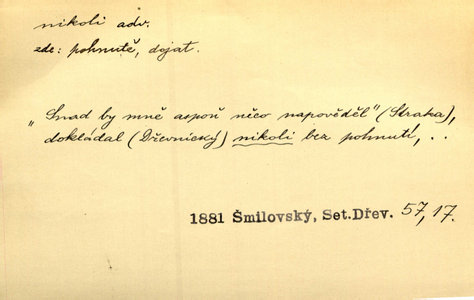 nikoli adv.
zde: pohnutě, dojat.
„Snad by mně aspoň něco napověděl" (Straka),
dokládal (Dřevnický) nikoli bez pohnutí, ..
1881 Šmilovský, Set.Dřev. 57,17.